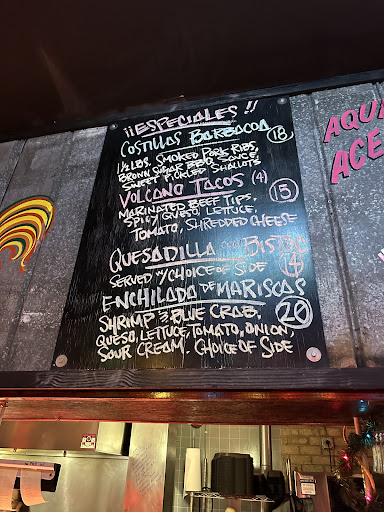 ¡¡ESPECIALES!!
COSTILLAS BARBACOA 18
1½ LBS. SMOKED PORK RIBS,
BROWN SUGAR BBQ SAUCE,
SWEET PICKLED SHALLOTS
VOLCANO TACOS (4) 15
MARINATED BEEF TIPS,
SPICY QUESO, LETTUCE,
TOMATO, SHREDDED CHEESE
QUESADILLA CON BISTEC 14
SERVED W/ CHOICE OF SIDE
ENCHILADA DE MARISCAS 20
SHRIMP & BLUE CRAB,
QUESO, LETTUCE, TOMATO, ONION,
SOUR CREAM. CHOICE OF SIDE
AQUA
ACE